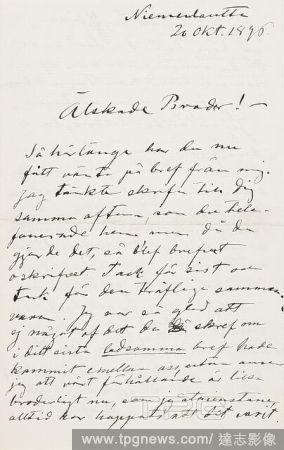 Niemenlautta
20 Okt. 1896
Älskade Broder! —
Så här länge har du nu
fått vänta på bref från mig.
Jag tänkte skrifva till dig
samma afton, som du tele-
fonerade hem men då du
gjorde det, så blef brefvet
oskrifvet. Tack för sist och
tack för den träfliga samman-
varon. Jag var så glad att
ej något af det du skref om
i ditt sista ledsamma bref hade
kommit emellan oss, utan anser
jag att vårt förhållande är lika
broderligt nu, som jag
alltid har hoppats, att det varit.
www.tpgnews.com/ 達志影像